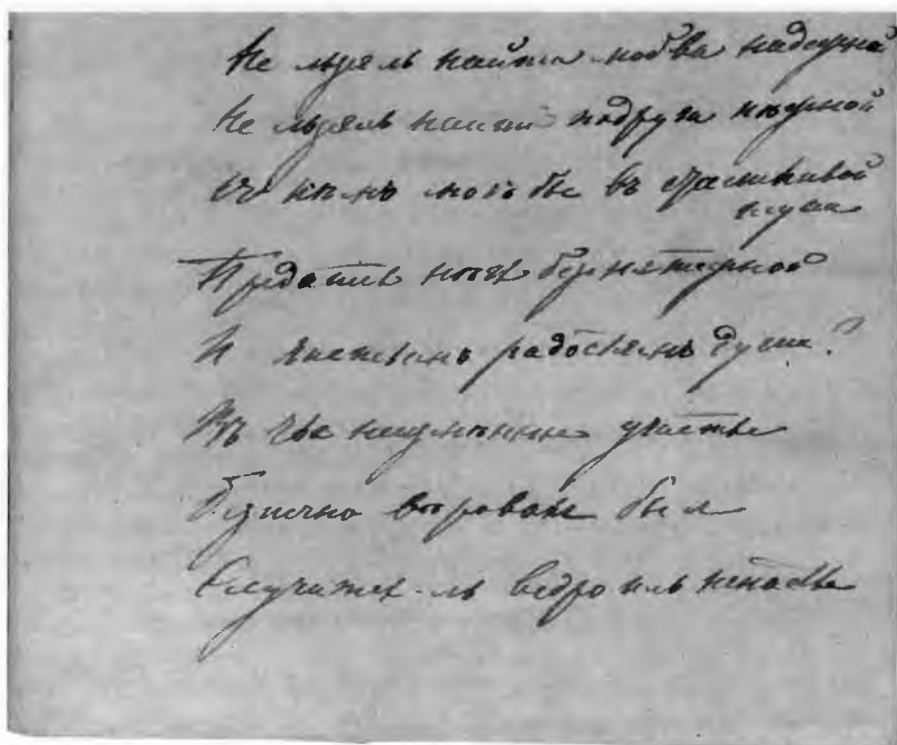 Не льзяль найти любви надежной
Не льзяль найти подруги нѣжной
Съ кѣмъ могъ бы въ счастливой
глуши
Предаться нѣгѣ безмятежной
И чистымъ радостямъ души?
Въ чье неизмѣнное участье
Безпечно вѣровалъ бы я
Случится-ль ведро иль ненастье